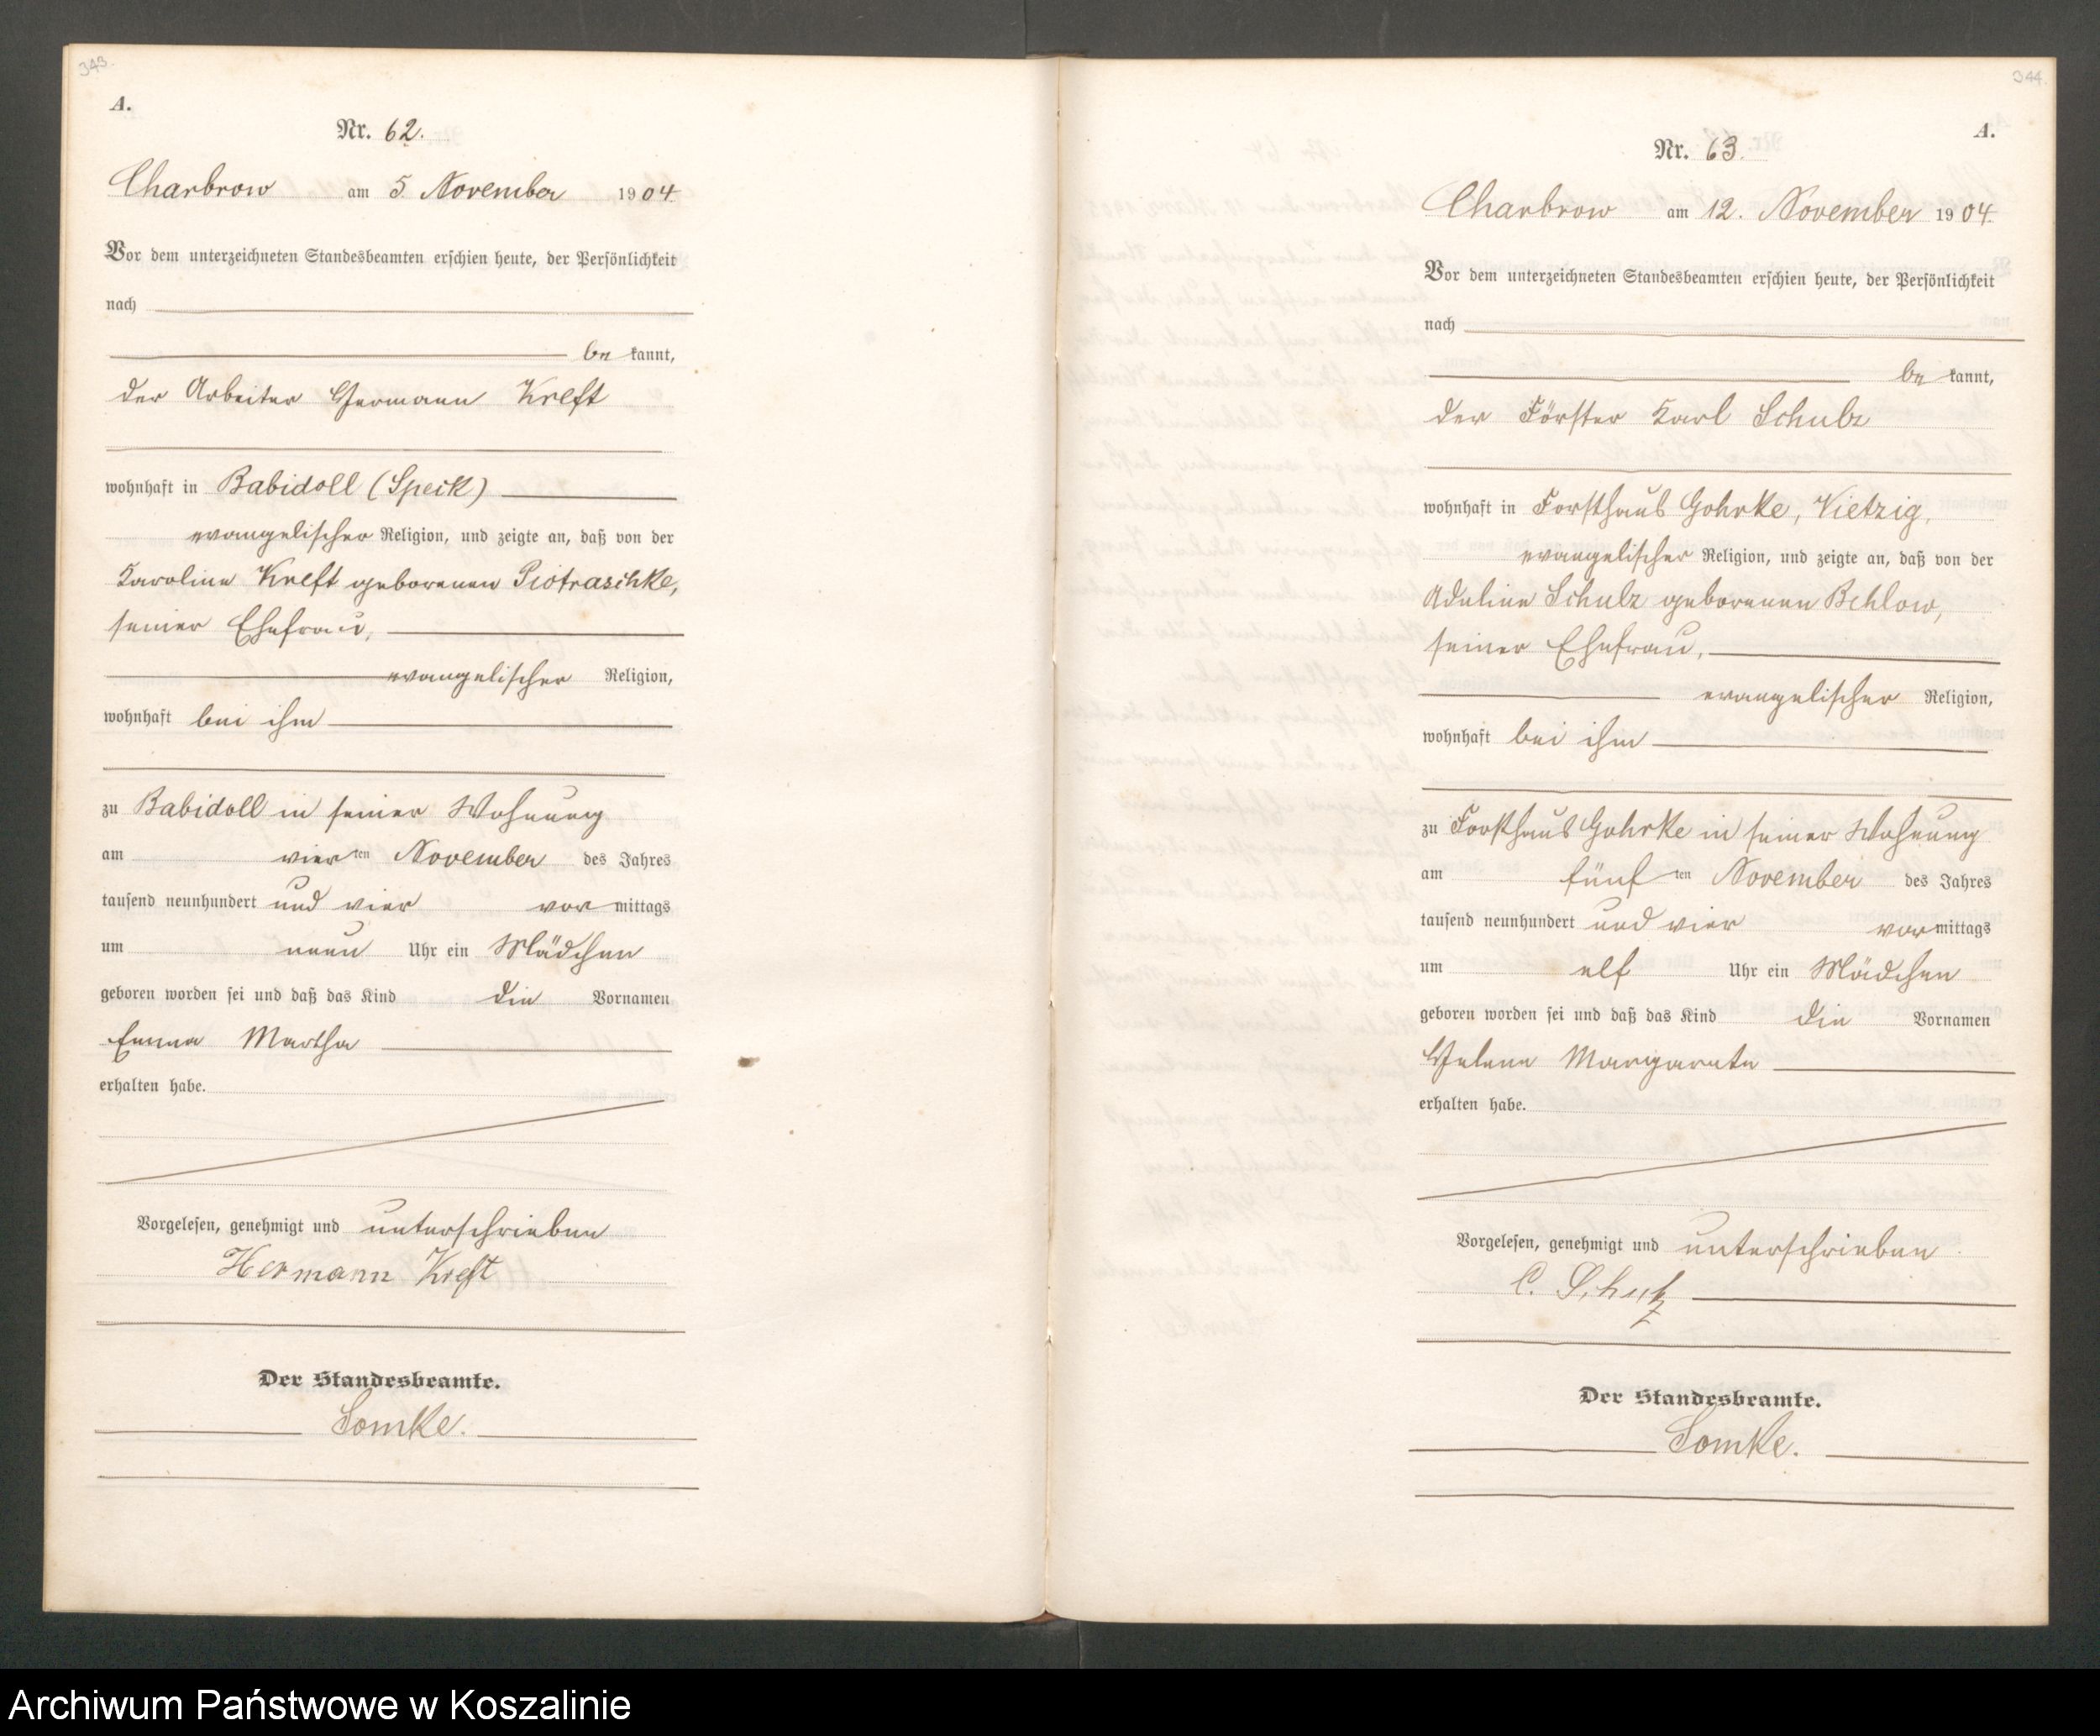 343.
A.
Nr. 62.
Charbrow am 5. November 1904.
Vor dem unterzeichneten Standesbeamten erschien heute, der Persönlichkeit
nach
be kannt,
der Arbeiter Hermann Kreft
wohnhaft in Babidoll (Speck)
evangelischer Religion, und zeigte an, daß von der
Karoline Kreft geborenen Piotraschke,
seiner Ehefrau,
evangelischer Religion,
wohnhaft bei ihm
zu Babidoll in seiner Wohnung
am vier ten November des Jahres
tausend neunhundert und vier vor mittags
um neun Uhr ein Mädchen
geboren worden sei und daß das Kind die Vornamen
Emma Martha
erhalten habe.
Vorgelesen, genehmigt und unterschrieben
Hermann Kreft
Der Standesbeamte.
Somke.
344.
A.
Nr. 63.
Charbrow am 12. November 1904.
Vor dem unterzeichneten Standesbeamten erschien heute, der Persönlichkeit
nach
be kannt,
der Förster Karl Schulz
wohnhaft in Forsthaus Gohrke, Vietzig,
evangelischer Religion, und zeigte an, daß von der
Adeline Schulz geborenen Behlow,
seiner Ehefrau,
evangelischer Religion,
wohnhaft bei ihm
zu Forsthaus Gohrke in seiner Wohnung
am fünf ten November des Jahres
tausend neunhundert und vier vor mittags
um elf Uhr ein Mädchen
geboren worden sei und daß das Kind die Vornamen
Helene Margarete
erhalten habe.
Vorgelesen, genehmigt und unterschrieben
C. Schulz
Der Standesbeamte.
Somke.
Archiwum Państwowe w Koszalinie